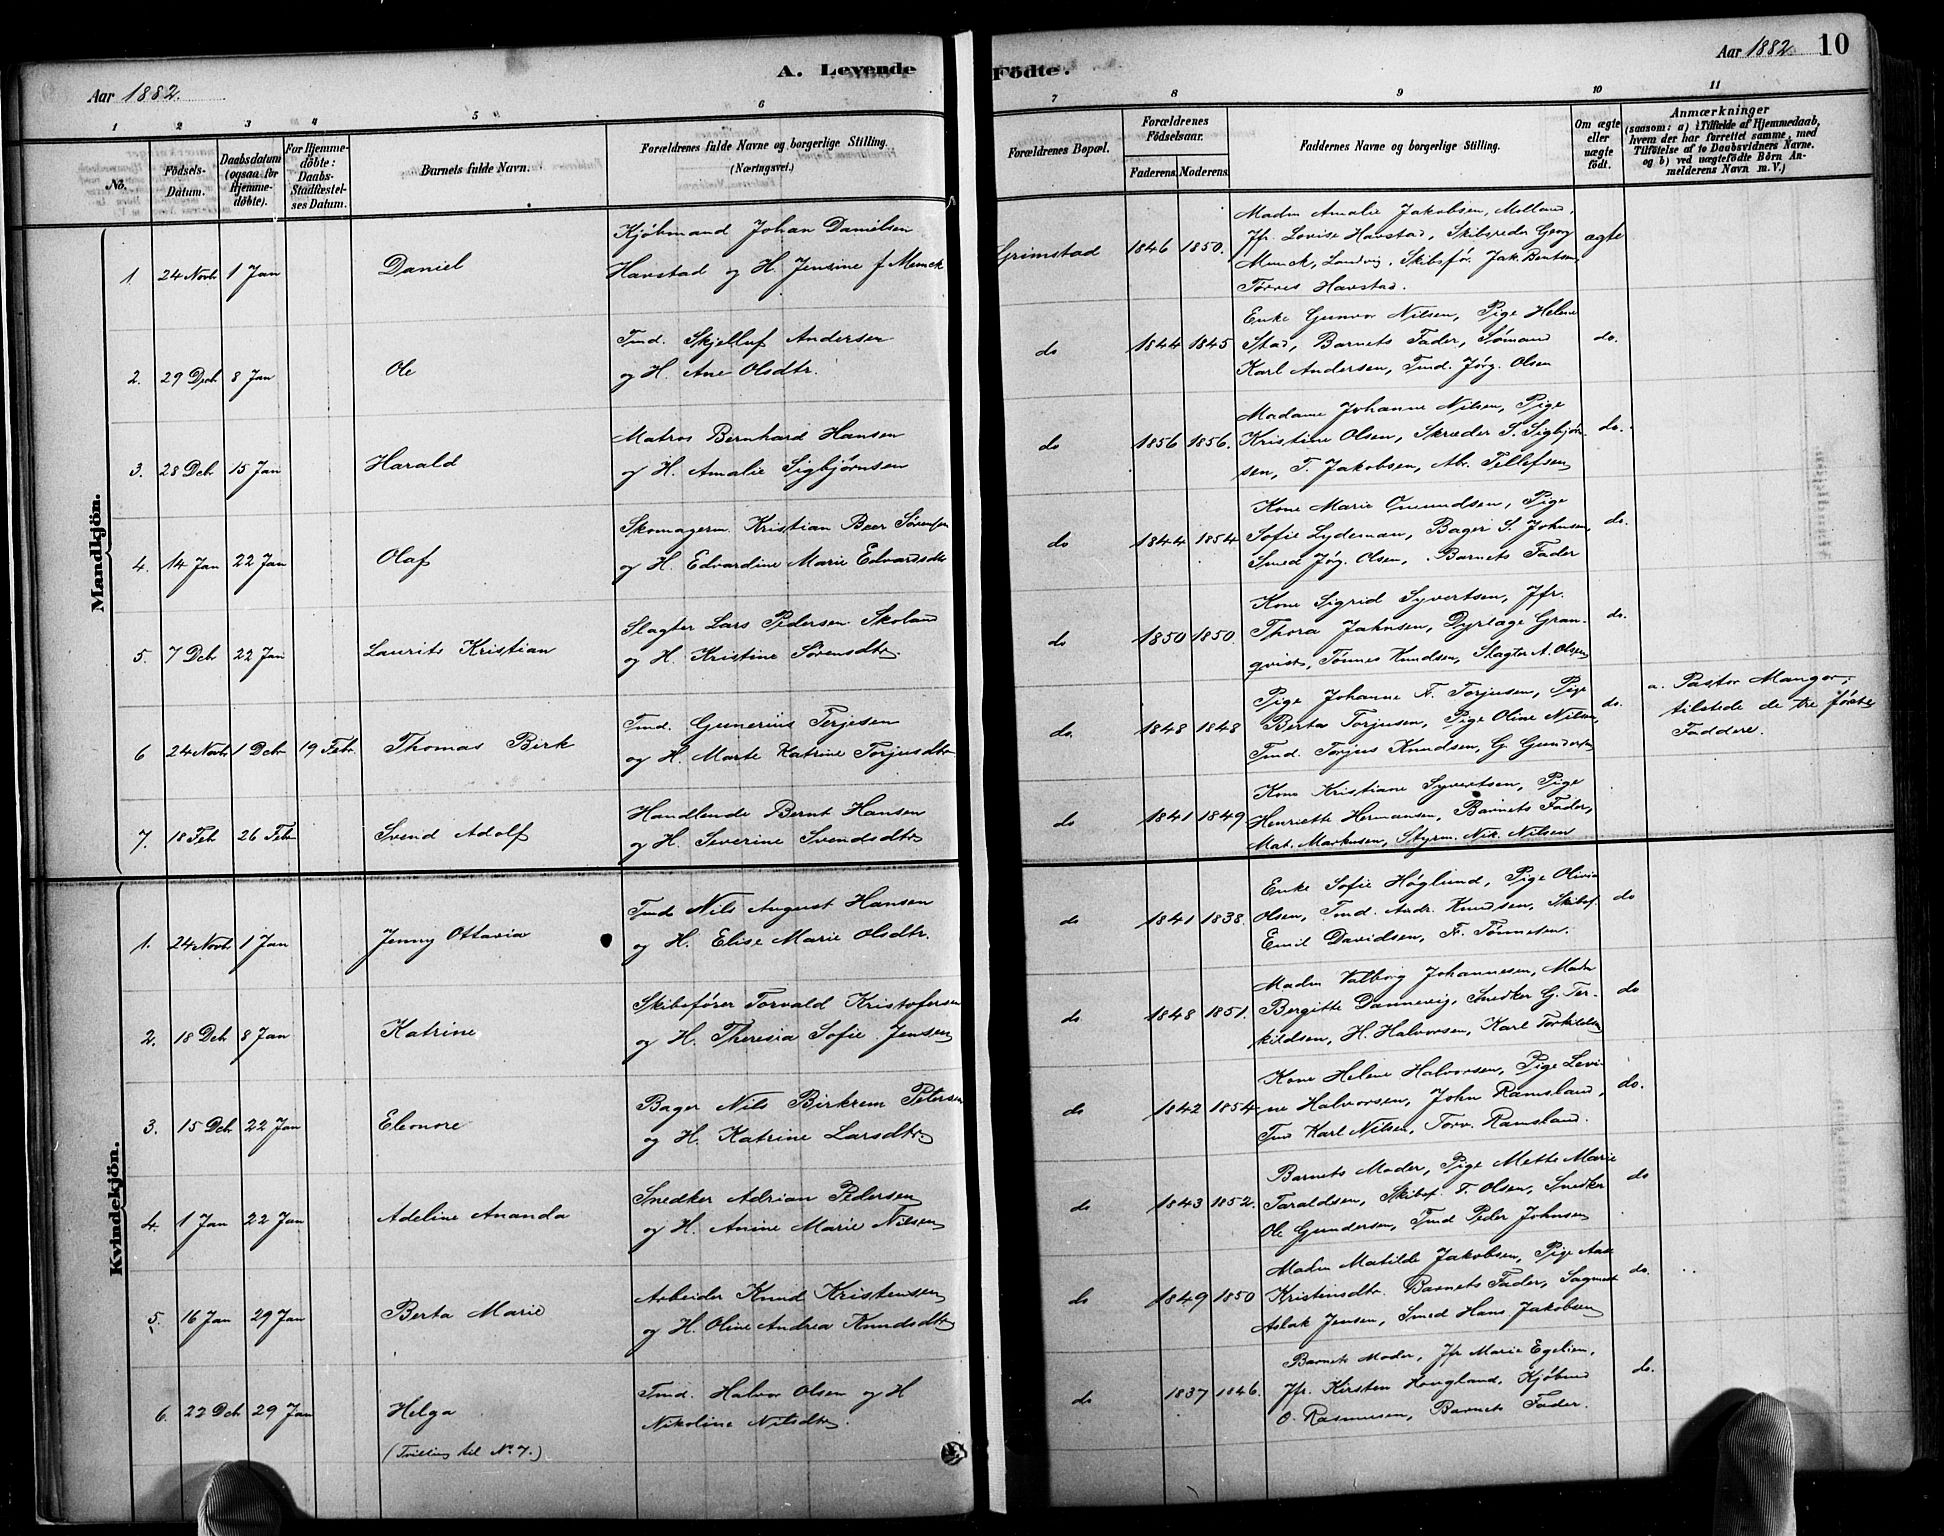 Aar 1882.
A. Levende Födte.
Aar 1882 10
1 2 3 4 5 6 7 8 9 10 11
No.
Födsels-Datum.
Daabsdatum (ogsaa for Hjemme-döbte).
For Hjemme-döbte: Daabs-Stadfæstel-ses Datum.
Barnets fulde Navn.
Forældrenes fulde Navne og borgerlige Stilling.
(Næringsvei.)
Forældrenes Bopæl.
Forældrenes Födselsaar.
Faderens. Moderens.
Faddernes Navne og borgerlige Stilling.
Om ægte eller uægte födt.
Anmærkninger
(saasom: a) i Tilfælde af Hjemmedaab,
hvem der har forrettet samme, med
Tilföielse af to Daabsvidners Navne.
og b) ved uægtefödte Börn An-
melderens Navn m. V.)
Mandkjön.
1. 24 Novb 1 Jan Daniel
Kjøbmand Johan Danielsen
Havstad og H. Jensine f Munck
Grimstad 1846 1850.
Madm Amalie Jakobsen, Molland,
Jfr. Lovise Havstad, Skibsreder Georg
Munck, Landvig, Skibsfø. Jak. Bentsen,
Tørres Havstad.
ægte
2. 29 Decb 8 Jan Ole
Tmd. Skjelluf Andersen
og H. Ane Olsdtr.
do 1844 1845
Enke Gunvor Nilsen, Pige Helene
Stad, Barnets Fader, Sømand
Karl Andersen, Tmd. Jørg. Olsen
do.
3. 28 Decb 15 Jan Harald
Matros Bernhard Hansen
og H. Amalie Sigbjørnsen
do 1856 1856.
Madame Johanne Nilsen, Pige
Kristine Olsen, Skræder S. Sigbjørn-
sen, T. Jakobsen, Ab. Tellefsen
do.
4. 14 Jan 22 Jan Olaf
Skomagerm Kristian Beer Sørensen
og H. Edvardine Marie Edvardsdtr
do 1844 1854
Kone Marie Omundsen, Pige
Sofie Lydeman, Bager S. Johnsen,
Smed Jørg. Olsen, Barnets Fader
do.
5. 7 Decb 22 Jan Laurits Kristian
Slagter Lars Pedersen Skoland
og H. Kristine Sørensdtr.
do 1850 1850.
Kone Sigrid Syvertsen, Jfr.
Thora Jahnsen, Dyrlæge Gran-
qvist, Tønnes Knudsen, Slagter A. Olsen
do.
6 24 Novb 1 Decb 19 Febr. Thomas Birk
Tmd. Gunerius Terjesen
og H. Marte Katrine Torjusdtr
do. 1848 1848
Pige Johanne F. Torjusen, Pige
Berta Torjusen, Pige Oline Nilsen,
Tmd. Torjus Knudsen, G. Gundersen
do.
a. Pastor Mangor,
tilstede de tre første
Faddere.
7. 18 Feb 26 Febr Svend Adolf
Handlende Bernt Hansen
og H. Severine Svendsdtr
do 1841 1849
Kone Kristiane Syvertsen, Pige
Henriette Hermansen, Barnets Fader,
Mat. Markusen, Styrm. Nik. Nilsen
Kvindekjön.
1. 24 Novb 1 Jan Jenny Ottavia
Tmd Nils August Hansen
og H. Elise Marie Olsdtr.
do 1841 1838.
Enke Sofie Høglund, Pige Olivia
Olsen, Tmd. Andr. Knudsen, Skibsf.
Emil Davidsen, F. Tønnesen.
do
2. 18 Decb 8 Jan Katrine
Skibsfører Torvald Kristofersen
og H. Theresia Sofie Jensen
do 1848 1851.
Madm Valborg Johannesen, Madm
Bergitte Dannevig, Snedker G. Ter-
kildsen, H. Halvorsen, Karl Torkildsen
do
3. 15 Decb 22 Jan Eleonore
Bager Nils Birkrem Petersen
og H. Katrine Larsdtr.
do 1842 1854
Kone Helene Halvorsen, Pige Levi-
ne Halvorsen, John Ramsland,
Tmd Karl Nilsen, Torv. Ramsland.
do.
4. 1 Jan 22 Jan Adeline Ananda
Snedker Adrian Pedersen
og H. Anine Marie Nilsen
do 1843 1852.
Barnets Moder, Pige Mette Marie
Taraldsen, Skibsf. T. Olsen, Snedker
Ole Gundersen, Tmd Peder Johnsen
do
5. 16 Jan 29 Jan Berta Marie
Arbeider Knud Kristensen
og H. Oline Andrea Knudsdtr
do 1849 1850
Madm Matilde Jakobsen, Pige Aase
Kristensdtr. Barnets Fader, Sagmest
Aslak Jensen, Smed Hans Jakobsen
do.
6. 22 Decb 29 Jan Helga
(Tvilling til No 7.)
Tmd. Halvor Olsen og H
Nikoline Nilsdtr.
do 1837 1846.
Barnets Moder, Jfr Marie Egelien,
Jfr. Kirsten Hougland, Kjøbmd
O. Rasmusen, Barnets Fader.
do.